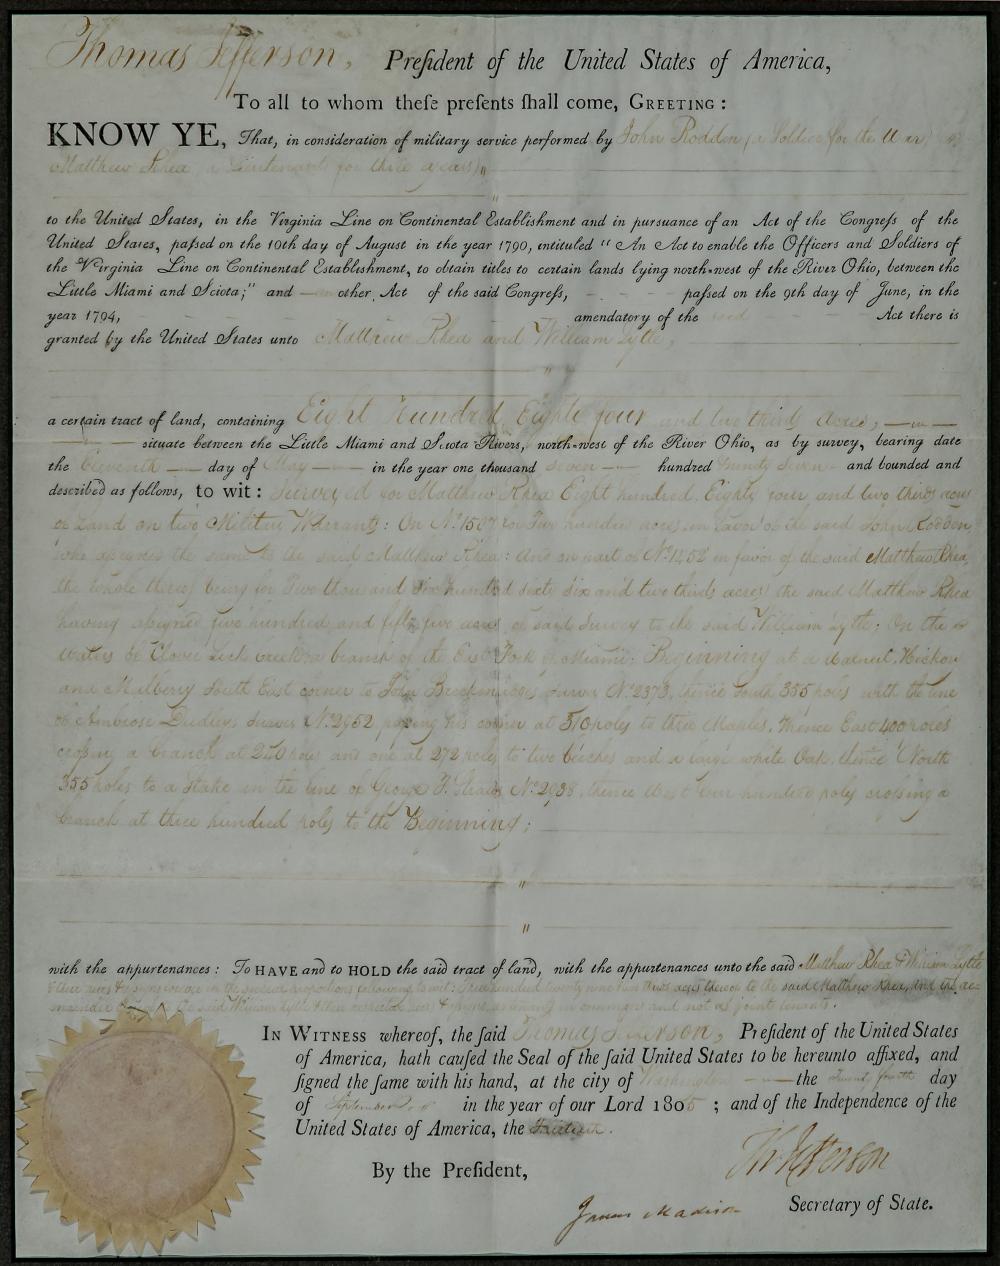 Thomas Jefferson, Preſident of the United States of America,
To all to whom theſe preſents ſhall come, GREETING :
KNOW YE, That, in consideration of military service performed by John Rodden (a Soldier for the War)
Matthew Rhea (a Lieutenant for three years)
to the United States, in the Virginia Line on Continental Establishment and in pursuance of an Act of the Congreſs of the
United States, paſsed on the 10th day of August in the year 1790, intituled " An Act to enable the Officers and Soldiers of
the Virginia Line on Continental Establishment, to obtain titles to certain lands lying north-west of the River Ohio, between the
Little Miami and Sciota;" and another Act of the said Congreſs, paſsed on the 9th day of June, in the
year 1794, amendatory of the said Act there is
granted by the United States unto Matthew Rhea and William Lytle,
a certain tract of land, containing Eight Hundred Eighty four and two thirds acres,
situate between the Little Miami and Sciota Rivers, north-west of the River Ohio, as by survey, bearing date
the Eleventh day of May in the year one thousand seven hundred ninety seven and bounded and
described as follows, to wit : Surveyed for Matthew Rhea Eight hundred, Eighty four and two thirds acres
of Land on two Military Warrants: On No. 1507 for Two hundred acres in favor of the said John Rodden,
who aſsigned the same to the said Matthew Rhea: And on part of No. 1452 in favor of the said Matthew Rhea,
the whole thereof being for Two thousand Six hundred sixty six and two thirds acres) the said Matthew Rhea
having aſsigned five hundred and fifty five acres of said Survey to the said William Lytle; On the
waters of Clover Lick creek a branch of the East Fork of Miami: Beginning at a Walnut, Hickory
and Mulberry South East corner to John survey No. 2373, thence South 355 poles with the line
of Ambrose Dudley, survey No. 2952 paſsing his corner at 310 poles to three Maples, thence East 400 poles
croſsing a branch at 240 poles and one at 272 poles to two beeches and a large white Oak, thence North
355 poles to a Stake in the line of George No. 2938, thence West four hundred poles croſsing a
branch at three hundred poles to the Beginning;
with the appurtenances : To HAVE and to HOLD the said tract of land, with the appurtenances unto the said Matthew Rhea & William Lytle
their heirs & aſsigns in the several proportions following to wit: Three hundred twenty nine two thirds acres thereof to the said Matthew Rhea, and the re-
mainder the said William Lytle & their respective heirs & aſsigns, as tenants in common and not as joint tenants.
IN WITNESS whereof, the ſaid Thomas Jefferson, Preſident of the United States
of America, hath cauſed the Seal of the ſaid United States to be hereunto affixed, and
ſigned the ſame with his hand, at the city of Washington the Twenty fourth day
of September in the year of our Lord 1805 ; and of the Independence of the
United States of America, the Thirtieth.
Th: Jefferson
By the Preſident,
James Madison Secretary of State.